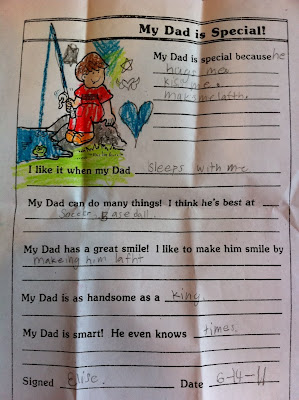 My Dad is Special!
My Dad is special because he
hugs me
kiss me
makes me lafth.
I like it when my Dad sleeps with me
My Dad can do many things! I think he's best at
Soccer Baseball
My Dad has a great smile! I like to make him smile by
makeing him lafht
My Dad is as handsome as a king.
My Dad is smart! He even knows times.
Signed Elise. Date 6-14-11